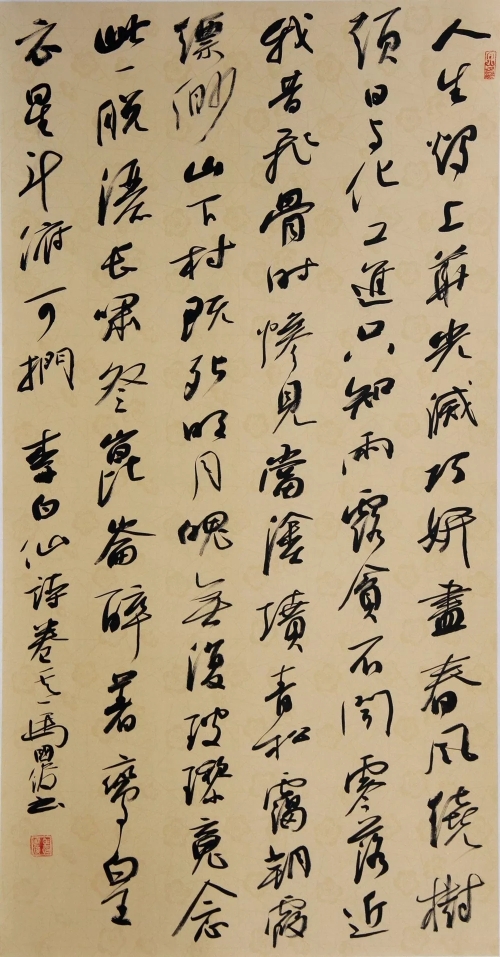 人生燭上華光滅巧妍盡春風繞樹
頭日与化工進只知雨露貪不聞零落近
我昔飛骨時慘見當塗墳青松靄朝霞
縹緲山下村既死明月魄無復玻瓈魂念
此一脫灑長嘯祭崑崙醉著鸞皇
衣星斗俯可捫 李白仙詩卷之一